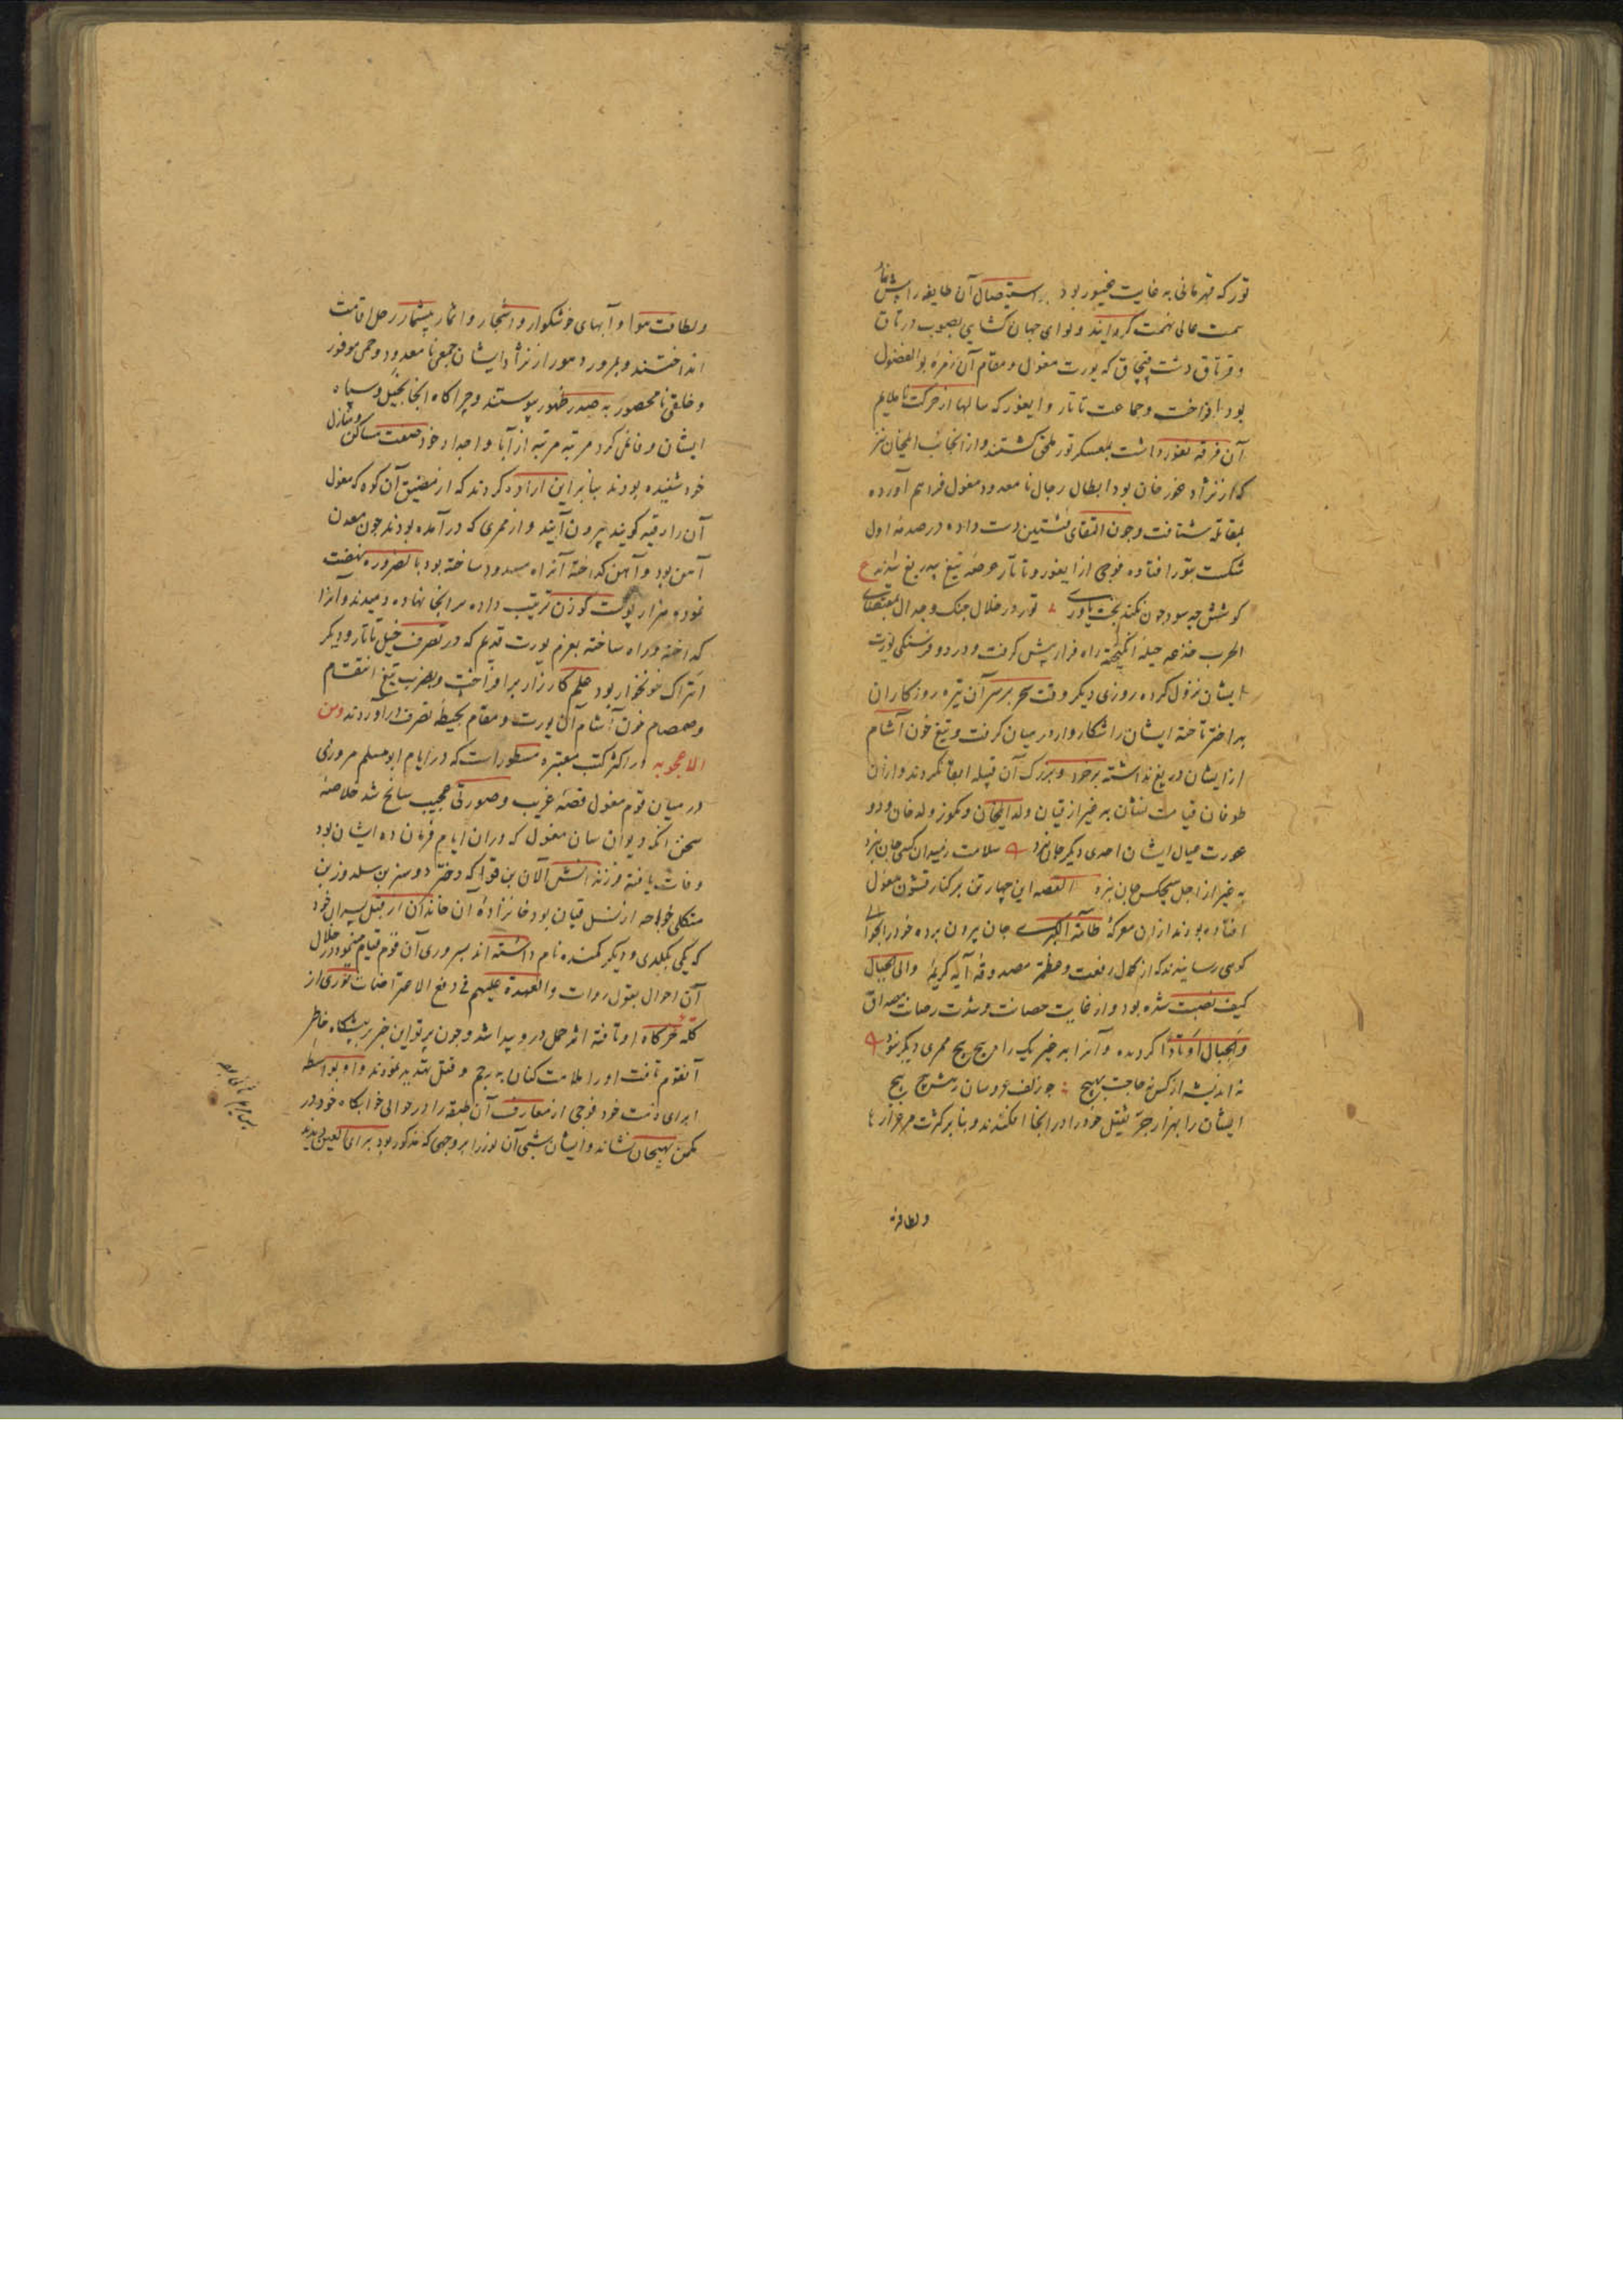 تور که قهرمانی به غایت غیور بود بر استیصال آن طایفه را پیش نهاد
همت عالی نهمت گردانید و لوای جهان کشای بصوب درتاق
و قرتاق دشت قپچاق که یورت مغول و مقام آن زمره بوالفضول
بود برافراخت و جماعت تاتار و ایغور که سالها از حرکت ناملایم
آن فرقه نفور داشت بمعسکر تور ملحق کشتند و از انجانب ایلخان نیز
که از نژاد غور خان بود ابطال رجال نامعدود مغول فراهم آورده
بمقاتله شتافت و چون التقای فئتین دست داده در صدمهٔ اول
شکست بتور افتاده فوجی از ایغور و تاتار عرضه تیغ بیدریغ شدند ع
کوشش چه سود چون نکند بخت یاوری تور در خلال جنک و جدال بمقتضای
الحرب خدعه حیله انکیخته راه فرار پیش کرفت و در دو فرسنکی یورت
ایشان نزول کرده روزی دیکر وقت سحر بر سر آن تیره روزکاران
بد اختر تاخته ایشان را شکار وار در میان کرفت و تیغ خون آشام
از ایشان دریغ نداشته بر خرد و بزرک آن قبیله ابقا نکردند و از ان
طوفان قیامت نشان به غیر از قیان ولد ایلخان و نکوز ولد خان و دو
عورت عیال ایشان احدی دیکر جان نبرد سلامت ز میدان کسی جان نبرد
به غیر از اجل هیچکس جان نبرد القصه این چهار تن بر کنار قشون مغول
افتاده بودند از ان معرکهٔ طامة الکبری جان بیرون برده خود را بحوالی
کوهی رسانیدند که از کمال رفعت و عظمت مصدوقهٔ آیهٔ کریمهٔ والی الجبال
کیف نصبت شده بود و از غایت حصانت و شدت رصانت مصداق
والجبال اوتادا کردیده و آنرا به غیر یک راه پیچ پیچ ممری دیکر نبود
نه اندیشه از کس نه حاجت بهیچ چو زلف عروسان رهش پیچ پیچ
ایشان را بهزار جر ثقیل خود را در انجا افکندند و بنابر کثرت مرغزارها
و لطافت
و لطافت هوا و آبهای خوشکوار و اشجار و اثمار بیشمار رحل اقامت
انداختند و بمرور دهور از نژاد ایشان جمعی نامعدود و جمی موفور
و خلقی نامحصور به حیز ظهور پیوستند و چراکاه انجا بخیل و سپاه
ایشان وفا نمی کرد مرتبه مرتبه از آبا و اجداد خود صفت مساکن و منازل
خود شنیده بودند بنابراین اراده کردند که از مضیق آن کوه که مغول
آن را رقیه کویند بیرون آیند و از ممری که در آمده بودند چون معدن
آهن بود و آهن کداخته آنراه مسدود ساخته بود بالضروره نهضت
نموده هزار پوست کوزن ترتیب داده در انجا نهاده دمیدند و آنرا
کداخته و راه ساخته بعزم یورت قدیم که در تصرف خیل تاتار و دیکر
اتراک خونخوار بود علم کارزار بر افراخت و بضرب تیغ انتقام
و صمصام خون آشام آن یورت و مقام بحیطهٔ تصرف درآوردند و من
الاعجوبه در اکثر کتب معتبره مسطور است که در ایام ابو مسلم مروزی
در میان قوم مغول قصهٔ غریب و صورتی عجیب سانح شد خلاصهٔ
سخن انکه دیوان سان مغول که در ان ایام فرمان ده ایشان بود
وفات یافته و زنش الان بن قوا که دختر دوسنر بن سلدوز بن
منکلی خواجه از نسل قیان بود خانزادهٔ آن خاندان از قبل پسران خود
که یکی بکلدی و دیکر بکنده نام داشته اند بسروری آن قوم قیام مینمود در خلال
آن احوال بقول روات والعهدة علیهم فی دفع الاعتراضات نوری از
کله خرکاه او تافته اثر حمل در و پیدا شد و چون پرتو این خبر بر پیشکاه خاطر
آنقوم تافت او را ملامت کنان به رجم و قتل تهدید نمودند و او بواسطه
ابرای ذمت خود فوجی از معارف آن طبقه را در حوالی خوابکاه خود در
مکمن پنهان نشانده و ایشان شبی آن نور را بر وجهی که مذکور بود برای العین دیدند